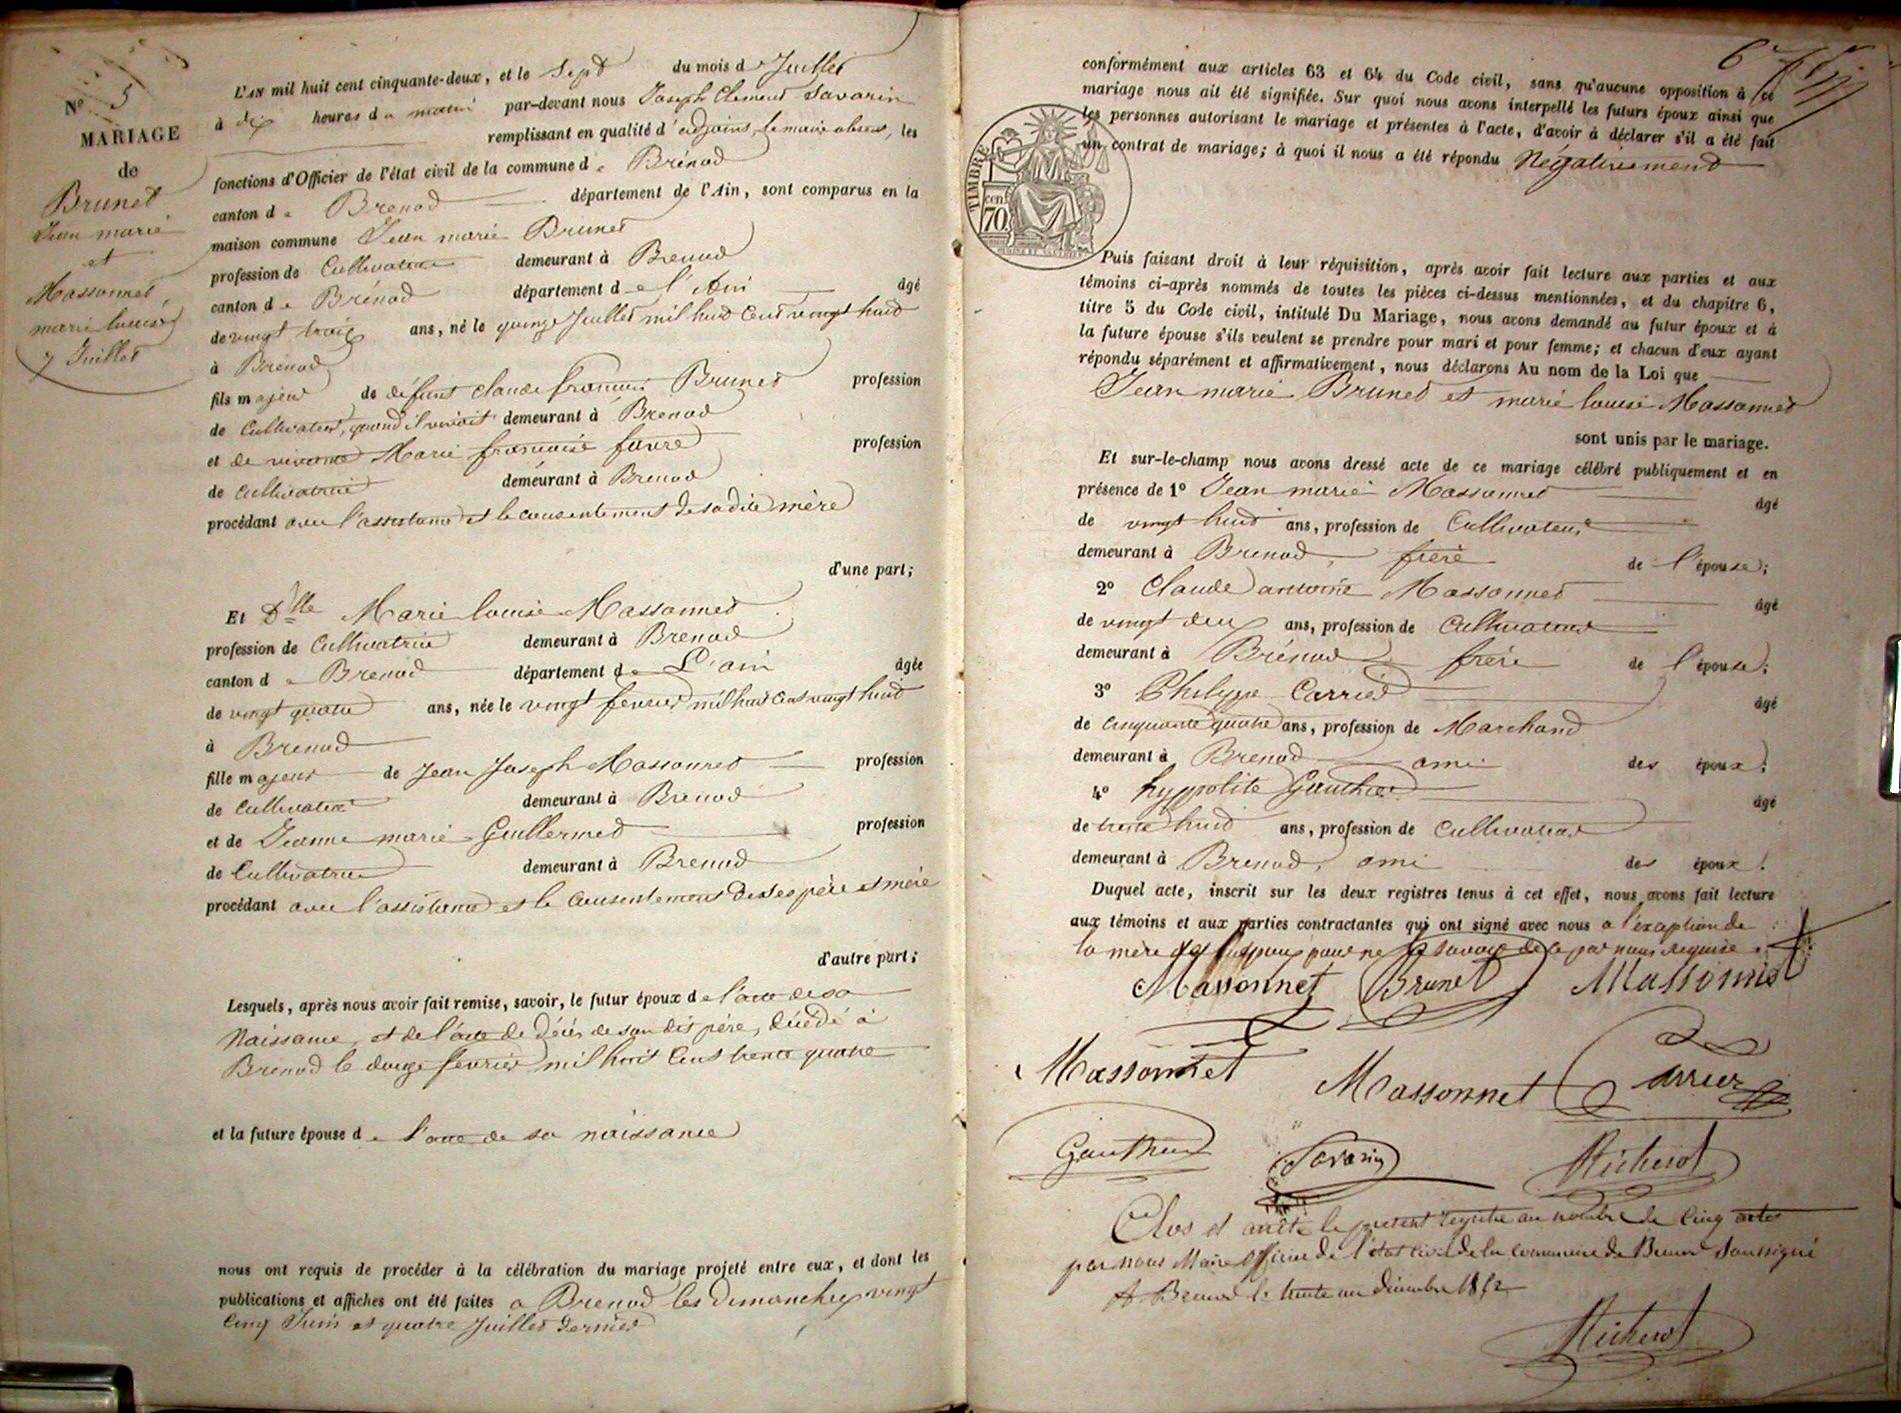 Nº 5
MARIAGE
de
Brunet
Jean marie
et
Massonnet
marie louise
7 Juillet
L'AN mil huit cent cinquante-deux, et le Sept du mois de Juillet
à dix heures du matin par-devant nous Joseph Clement Savarin
remplissant en qualité d'adjoint, le maire absent, les
fonctions d'Officier de l'état civil de la commune de Brénod
canton de Brenod département de l'Ain, sont comparus en la
maison commune Jean marie Brunet
profession de Cultivateur demeurant à Brenod
canton de Brénod département de l'Ain âgé
de vingt trois ans, né le quinze Juillet mil huit Cent vingt huit
à Brénod
fils majeur de défunt Claude françois Brunet profession
de Cultivateur, quand il vivait demeurant à Brénod
et de vivante Marie françoise favre profession
de Cultivatrice demeurant à Brenod
procédant avec l'assistance et le consentement de sadite mère
d'une part;
Et Dlle Marie louise Massonnet
profession de Cultivatrice demeurant à Brenod
canton de Brenod département de L'ain âgée
de vingt quatre ans, née le vingt fevrier mil huit cent vingt huit
à Brenod
fille majeur de Jean Joseph Massonnet profession
de Cultivateur demeurant à Brenod
et de Jeanne marie Guillermet profession
de Cultivatrice demeurant à Brenod
procédant avec l'assistance et le Consentement de ses père et mère
d'autre part;
Lesquels, après nous avoir fait remise, savoir, le futur époux de l'acte de sa
Naissance, et de l'acte de Décès de son dit père, décédé à
Brenod le douze fevrier mil huit Cent trente quatre
et la future épouse de l'acte de sa naissance
nous ont requis de procéder à la célébration du mariage projeté entre eux, et dont les
publications et affiches ont été faites a Brenod les dimanches vingt
Cinq Juin et quatre Juillet dernier
6
conformément aux articles 63 et 64 du Code civil, sans qu'aucune opposition à ce
mariage nous ait été signifiée. Sur quoi nous avons interpellé les futurs époux ainsi que
les personnes autorisant le mariage et présentes à l'acte, d'avoir à déclarer s'il a été fait
un contrat de mariage; à quoi il nous a été répondu Négativement
TIMBRE
cen.
70.
Puis faisant droit à leur réquisition, après avoir fait lecture aux parties et aux
témoins ci-après nommés de toutes les pièces ci-dessus mentionnées, et du chapitre 6,
titre 5 du Code civil, intitulé Du Mariage, nous avons demandé au futur époux et à
la future épouse s'ils veulent se prendre pour mari et pour femme; et chacun d'eux ayant
répondu séparément et affirmativement, nous déclarons Au nom de la Loi que
Jean marie Brunet et marie louise Massonnet
sont unis par le mariage.
Et sur-le-champ nous avons dressé acte de ce mariage célébré publiquement et en
présence de 1º Jean marie Massonnet âgé
de vingt huit ans, profession de Cultivateur
demeurant à Brenod, frère de l'épouse;
2º Claude antoine Massonnet âgé
de vingt deux ans, profession de Cultivateur
demeurant à Brénod frère de l'épouse;
3º Philippe Carrier âgé
de Cinquante quatre ans, profession de Marchand
demeurant à Brenod ami des époux;
4º hyppolite Gauthier âgé
de trente huit ans, profession de Cultivateur
demeurant à Brenod, ami des époux.
Duquel acte, inscrit sur les deux registres tenus à cet effet, nous avons fait lecture
aux témoins et aux parties contractantes qui ont signé avec nous a l'exception de
la mère de l'époux pour ne le savoir de ce par nous requise
Massonnet Brunet Massonnet
Massonnet Massonnet Carrier
Gauthier Savarin
Clos et arrêté le présent registre au nombre de Cinq actes
par nous Maire officier de l'état civil de la commune de Brenod Soussigné
A Brenod le trente un décembre 1852